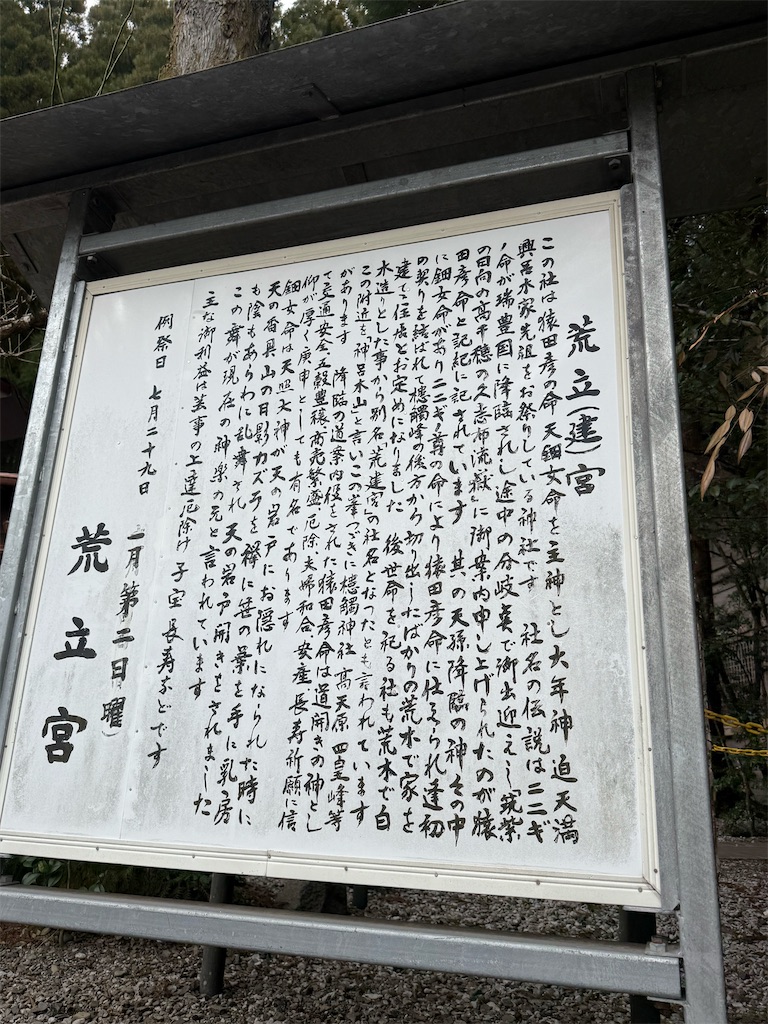 荒立(建)宮
この社は猿田彦の命 天鈿女命を主神とし大年神 迫天満
興呂木家先祖をお祭りしている神社です 社名の伝説はニニギ
ノ命が瑞豊国に降臨されし途中の分岐点で御出迎えし筑紫
の日向の高千穂の久志布流嶽に御案内申し上げられたのが猿
田彦命と記紀に記されています 其の天孫降臨の神々の中
に鈿女命がありニニギノ尊の命により猿田彦命に仕えられ逢初
の契りを結ばれて穂觸峰の後方から切り出したばかりの荒木で家を
建てて住居とお定めになりました 後世命を祀る社も荒木で白
木造りとした事から別名荒建宮の社名となったとも言われています
この附近を神呂木山と言いこの峯つづきに穂觸神社 高天原 四皇峰等
があります 降臨の道案内役をされた猿田彦命は道開きの神とし
て交通安全五穀豊穣、商売繁盛 厄除、夫婦和合 安産長寿祈願に信
仰が厚く庚申としても有名であります
鈿女命は天照大神が天の岩戸にお隠れになられた時に
天の香具山の日影カズラを襷に笹の葉を手に乳房
も陰もあらわに乱舞され 天の岩戸開きをされました
この舞が現在の神楽の元と言われています
主な御利益は芸事の上達厄除け 子宝 長寿などです
例祭日 七月二十九日
一月第二日曜)
荒立宮